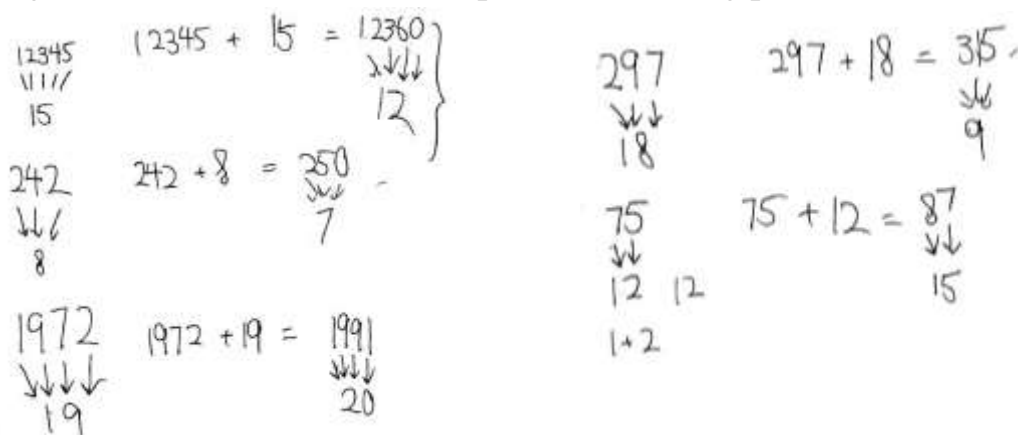 12345
15
12345 + 15 = 12360
12
242
8
242 + 8 = 250
7
1972
19
1972 + 19 = 1991
20
297
18
297 + 18 = 315
9
75
12 12
1+2
75 + 12 = 87
15